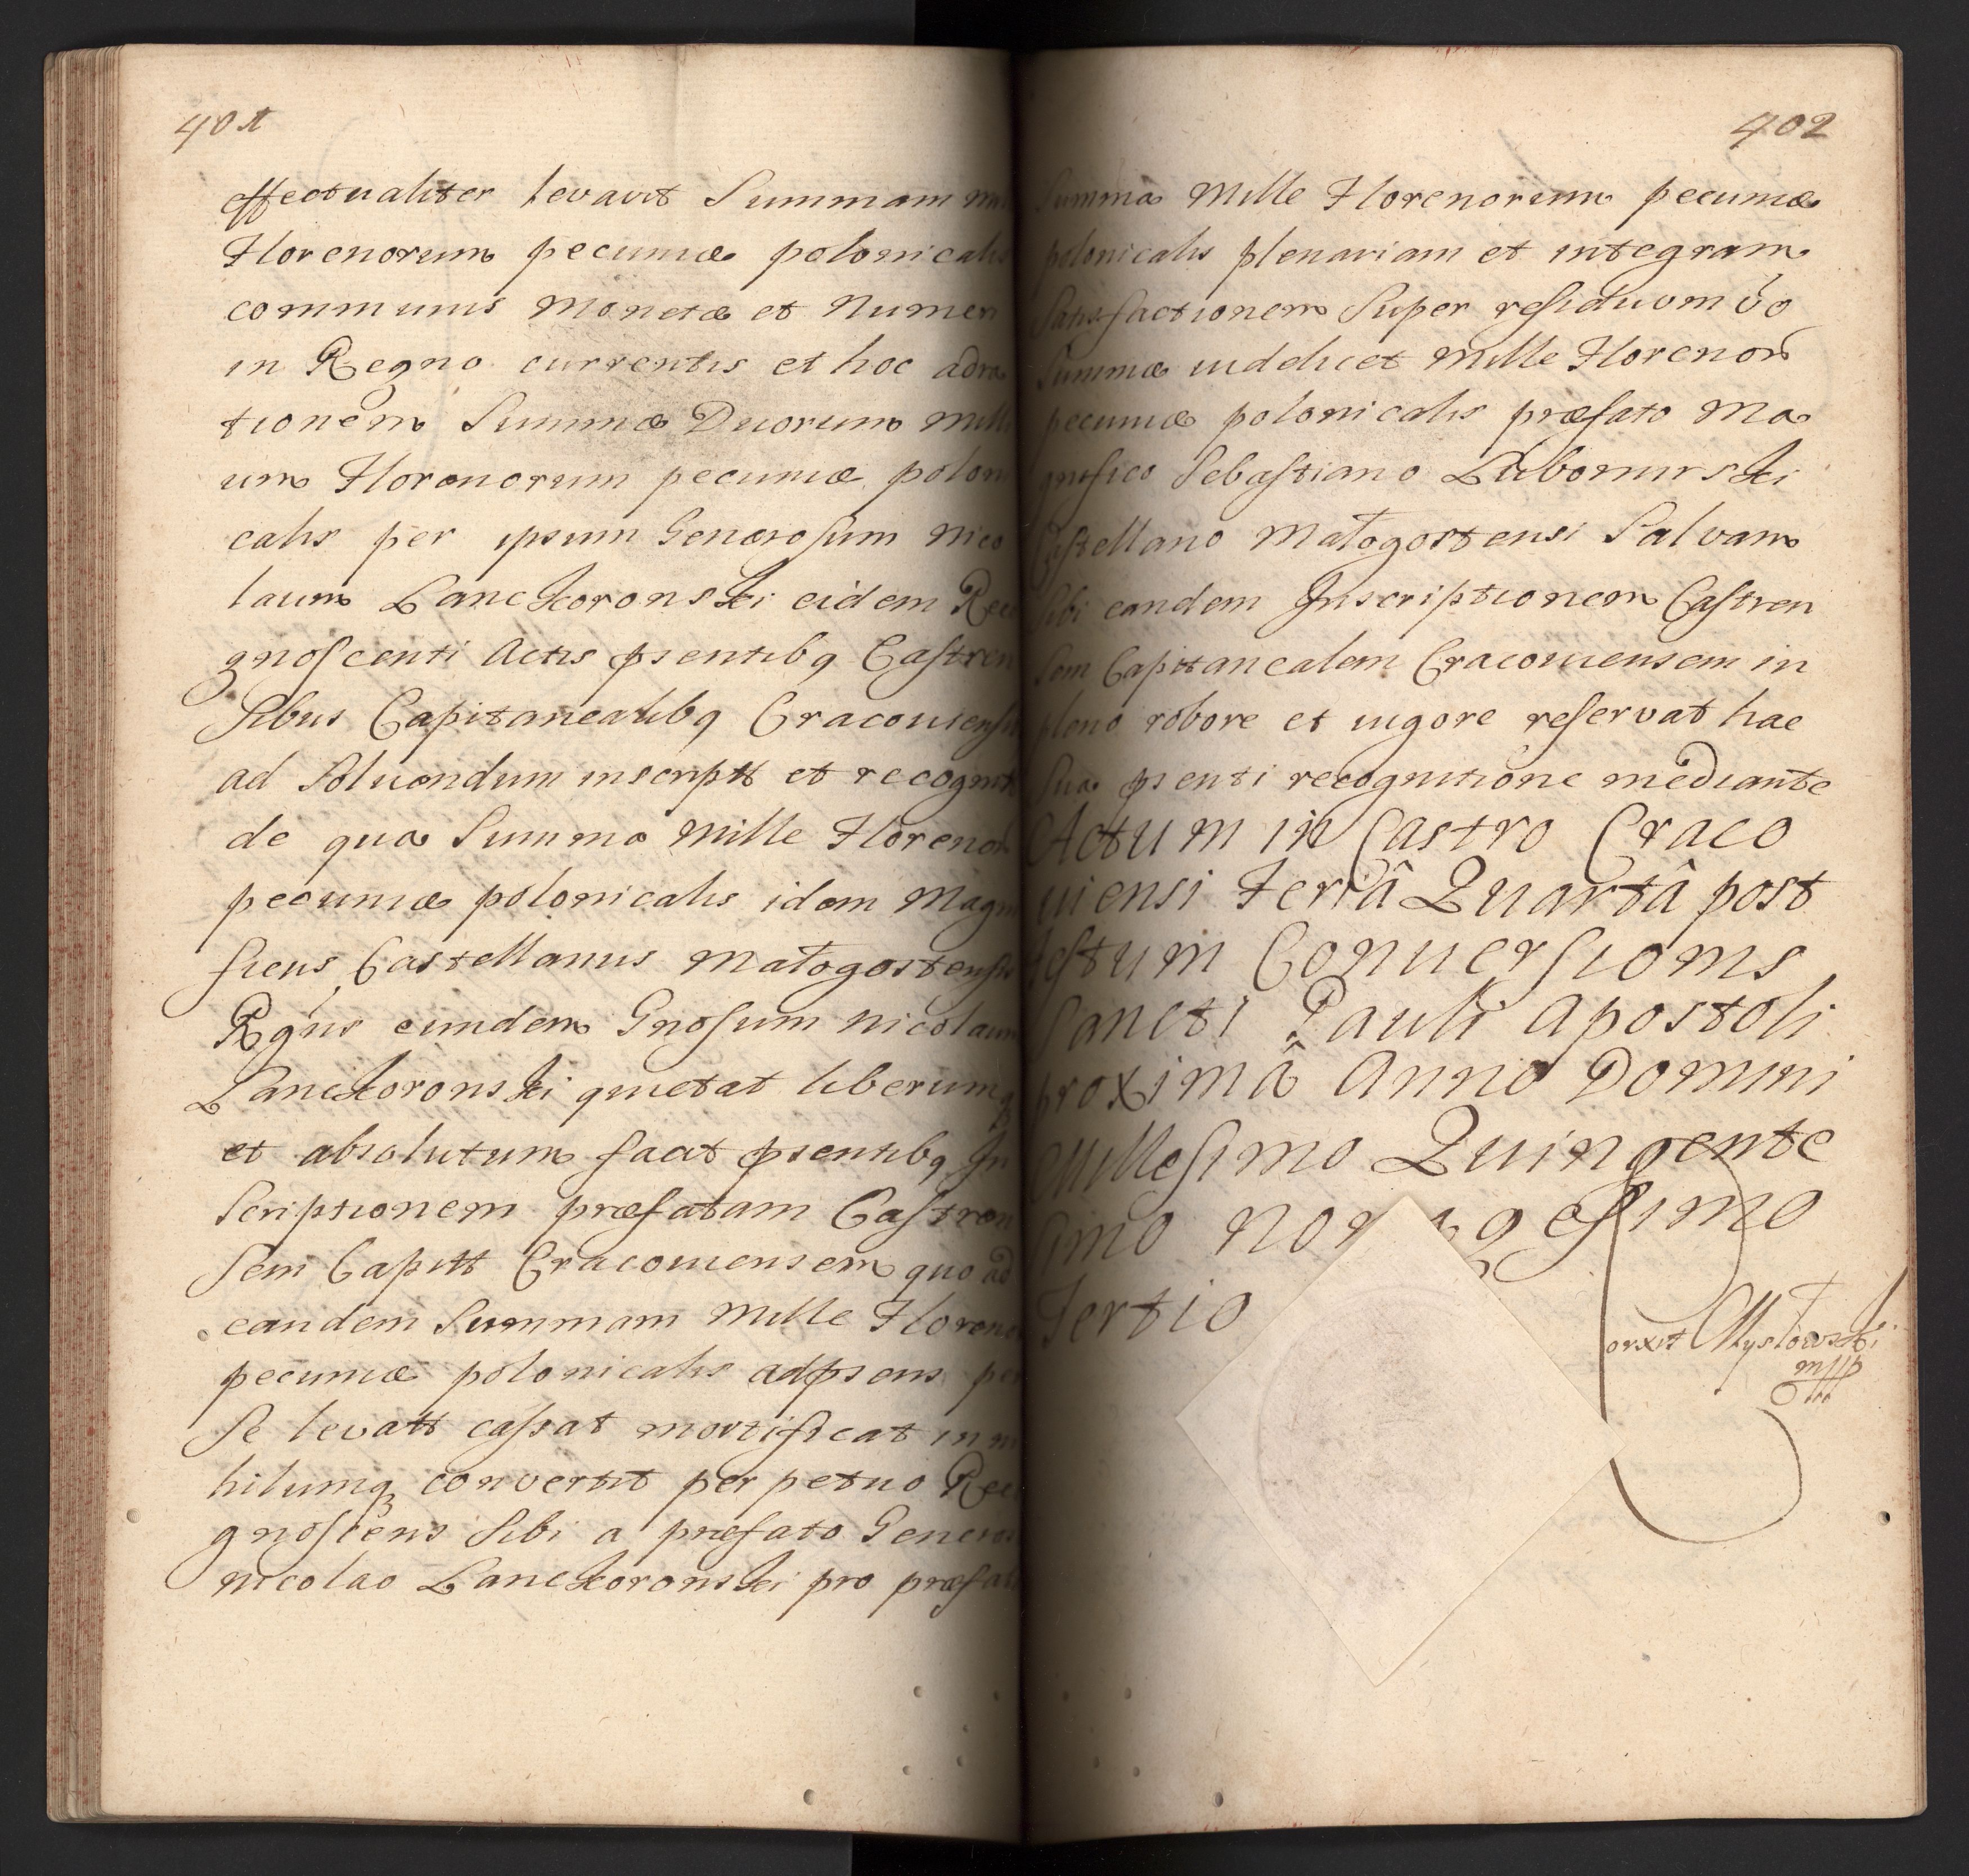 401
effectualiter levavit Summam
Florenorum pecuniæ polonicalis
communis Monetæ et Numeri
in Regno currentis et hoc adra
tionem Summæ Duorum Milli
um Florenorum pecuniæ poloni
calis per ipsum Generosum Nico
laum Lanckoronski eidem Reco
gnoscenti Actis pſentibq Caſtren
Sibus Capitanealibq Cracoviensi
ad Soluendum inscriptt et recognit
de qua Summa Mille Florenor
pecuniæ polonicalis idem Magni
ficus Castellanus Małogostensis
Rgñs eundem Gnosum Nicolaum
Lanckoronski quietat liberumq
et absolutum facit pſentibq In
Scriptionem præfatam Caſtren
Sem Capitt Cracoviensem quo ad
eandem Summam Mille Floreno
pecuniæ polonicalis adpſens per
Se levatt caſsat mortificat in ni
hilumq convertit perpetuo Reco
gnoſcens Sibi a præfato Generoso
Nicolao Lanckoronski pro præfata
402
Summa Mille Florenorum pecuniæ
polonicalis plenariam et integram
Satisfactionem Super reſiduum v̄o
Summæ videlicet Mille Florenor̄
pecuniæ polonicalis præfato Ma
gnifico Sebaſtiano Lubomirski
Caſtellano Małogostensi Salvam
Sibi eandem Inscriptionem Caſtren
Sem Capittanealem Cracoviensem in
pleno robore et vigore reſervat hac
Sua pſenti recognitione mediante
Actum in Castro Craco
viensi Feriâ Quartâ post
Feſtum Conuerſionis
Sancti Pauli Apostoli
proximâ Anno Domini
Milleſimo Quingente
Simo Nonageſimo
Tertio
Mysłowski
mpp